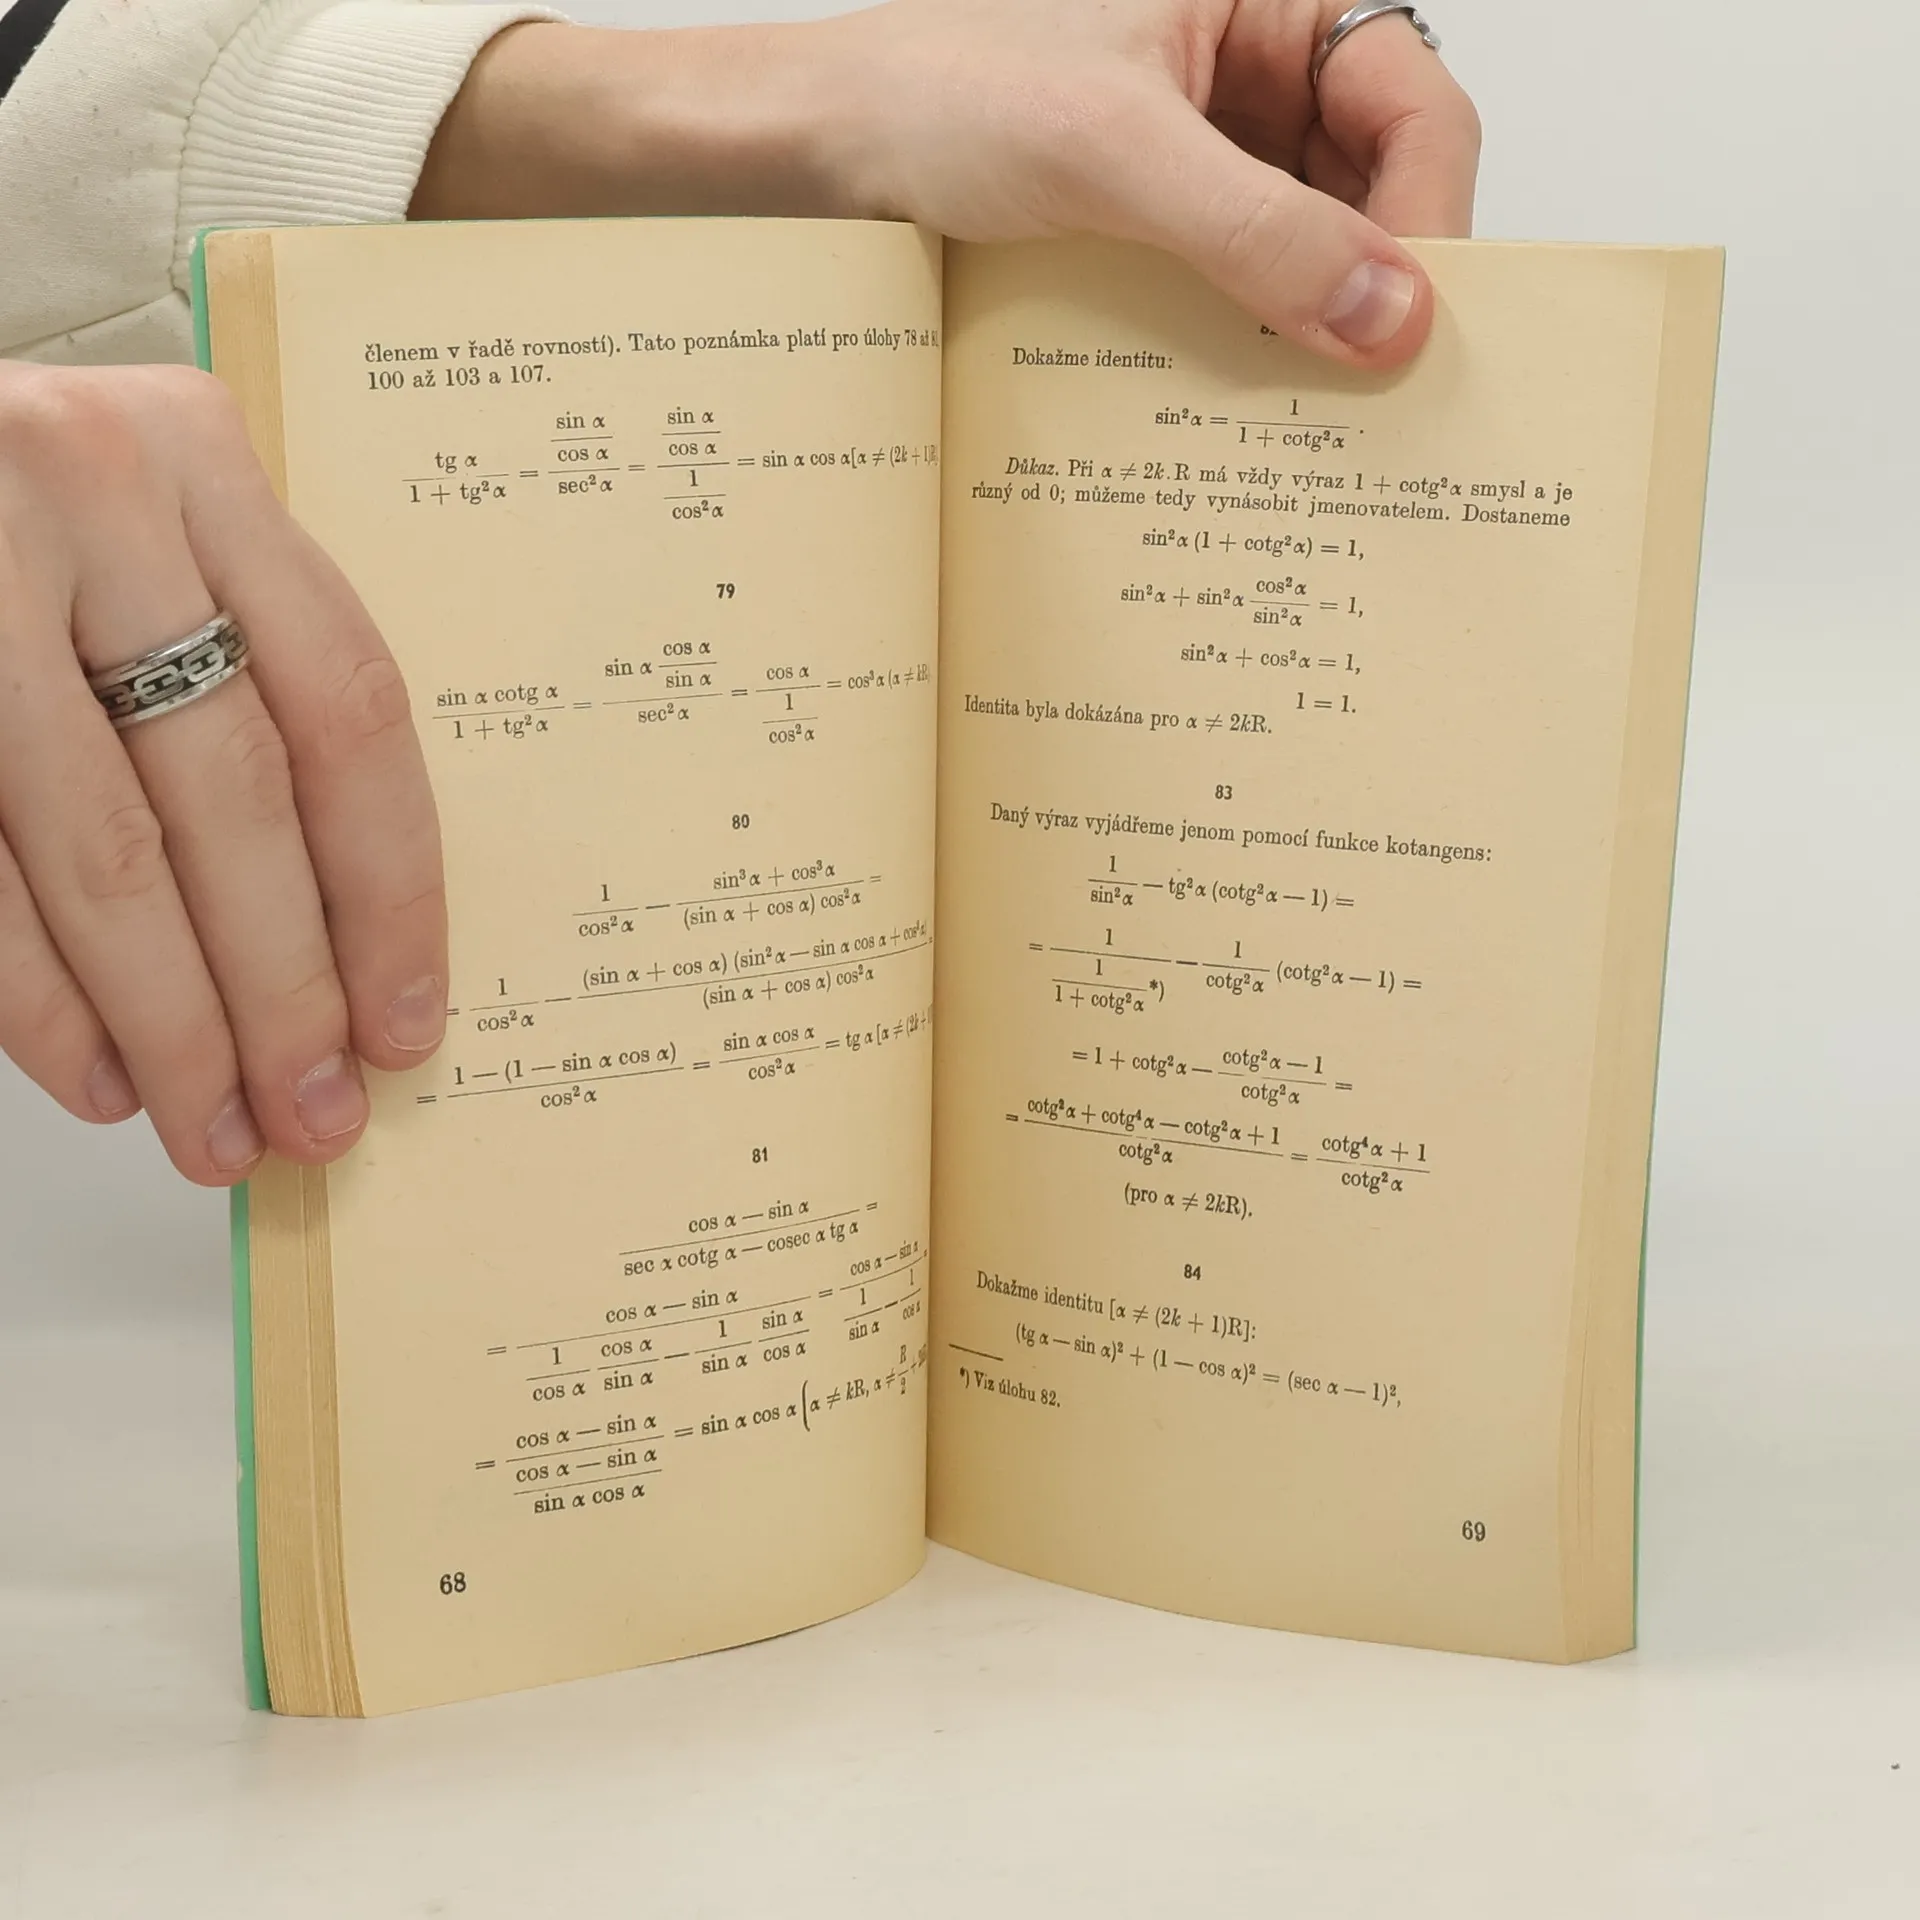 členem v řadě rovností). Tato poznámka platí pro úlohy 78 až
100 až 103 a 107.
tg α / (1 + tg² α) = (sin α / cos α) / sec² α = (sin α / cos α) / (1 / cos² α) = sin α cos α [α ≠ (2k + 1)R]
79
sin α cotg α / (1 + tg² α) = (sin α cos α / sin α) / sec² α = cos α / (1 / cos² α) = cos³ α (α ≠ kR)
80
1 / cos² α — (sin³ α + cos³ α) / ((sin α + cos α) cos² α) =
= 1 / cos² α — (sin α + cos α) (sin² α — sin α cos α + cos² α) / ((sin α + cos α) cos² α) =
= (1 — (1 — sin α cos α)) / cos² α = sin α cos α / cos² α = tg α [α ≠ (2k +
81
(cos α — sin α) / (sec α cotg α — cosec α tg α) =
= (cos α — sin α) / (1 / cos α cos α / sin α — 1 / sin α sin α / cos α) = (cos α — sin α) / (1 / sin α — 1 / cos α) =
= (cos α — sin α) / ((cos α — sin α) / (sin α cos α)) = sin α cos α (α ≠ kR, α ≠ R / 2 +
68
Dokažme identitu:
sin² α = 1 / (1 + cotg² α) .
Důkaz. Při α ≠ 2k.R má vždy výraz 1 + cotg² α smysl a je
různý od 0; můžeme tedy vynásobit jmenovatelem. Dostaneme
sin² α (1 + cotg² α) = 1,
sin² α + sin² α cos² α / sin² α = 1,
sin² α + cos² α = 1,
1 = 1.
Identita byla dokázána pro α ≠ 2kR.
83
Daný výraz vyjádřeme jenom pomocí funkce kotangens:
1 / sin² α — tg² α (cotg² α — 1) =
= 1 / (1 / (1 + cotg² α)) *) — 1 / cotg² α (cotg² α — 1) =
= 1 + cotg² α — (cotg² α — 1) / cotg² α =
= (cotg² α + cotg⁴ α — cotg² α + 1) / cotg² α = (cotg⁴ α + 1) / cotg² α
(pro α ≠ 2kR).
84
Dokažme identitu [α ≠ (2k + 1)R]:
(tg α — sin α)² + (1 — cos α)² = (sec α — 1)²,
*) Viz úlohu 82.
69